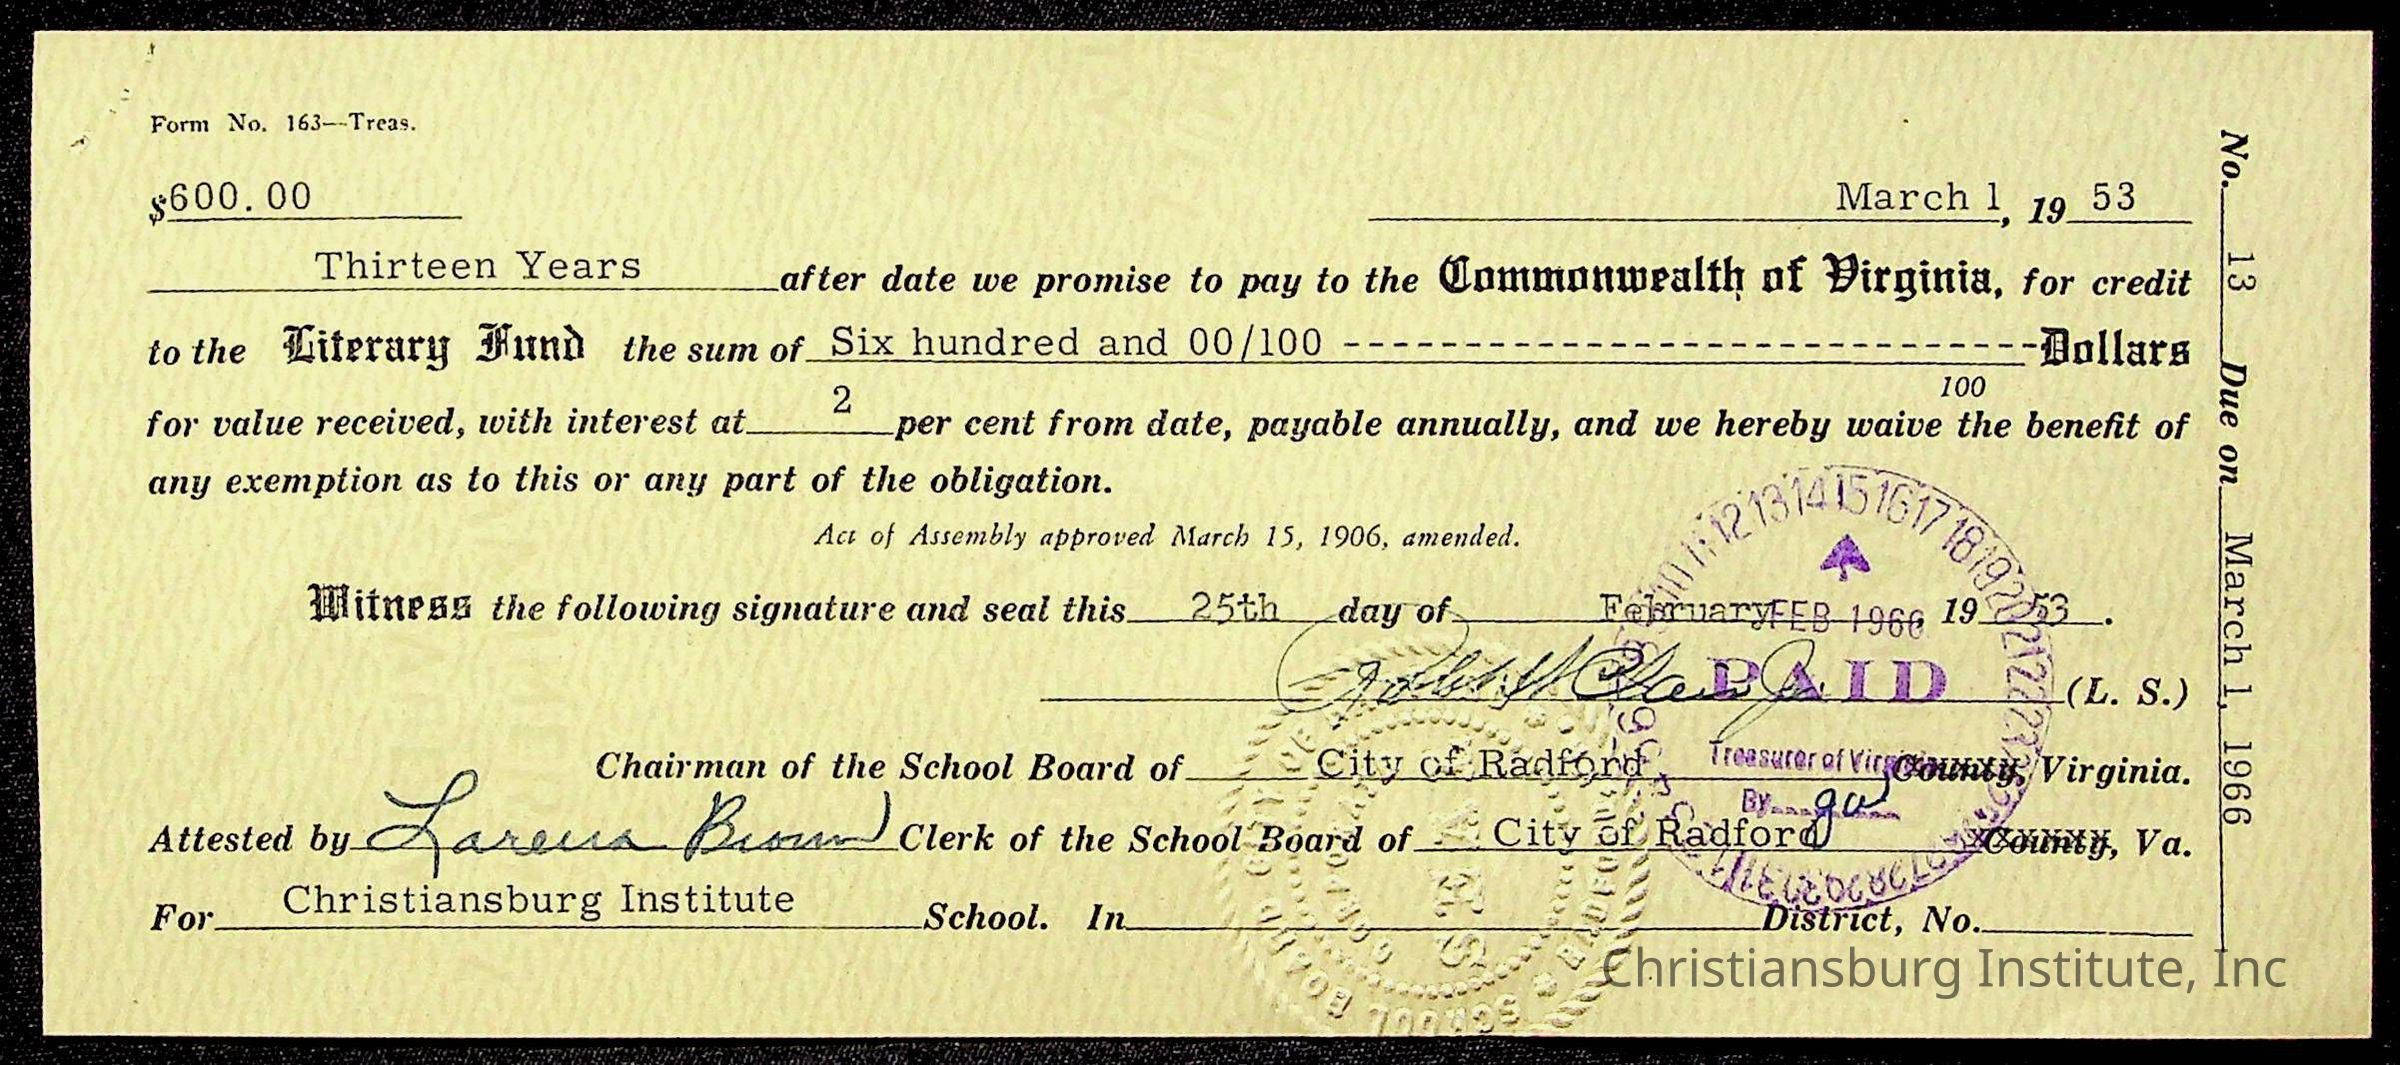 Form No. 163—Treas.
$600.00
March 1, 19 53
Thirteen Years after date we promise to pay to the Commonwealth of Virginia, for credit
to the Literary Fund the sum of Six hundred and 00/100 ------------------------------Dollars
100
for value received, with interest at 2 per cent from date, payable annually, and we hereby waive the benefit of
any exemption as to this or any part of the obligation.
Act of Assembly approved March 15, 1906, amended.
Witness the following signature and seal this 25th day of February, 19 53.
FEB 1966
PAID
(L. S.)
Chairman of the School Board of City of Radford County, Virginia.
Treasurer of Virginia
By
Attested by Larena Brown Clerk of the School Board of City of Radford County, Va.
For Christiansburg Institute School. In District, No.
No. 13 Due on March 1, 1966
Christiansburg Institute, Inc